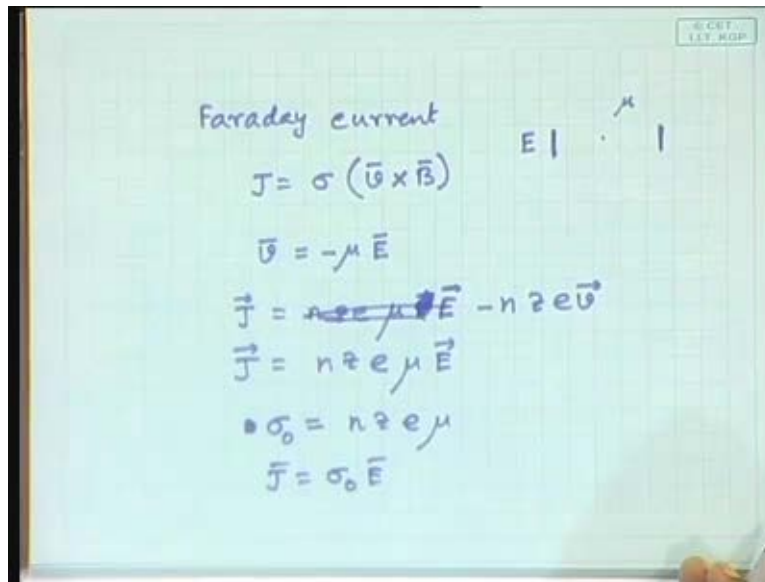 © CET
I.I.T. KGP
Faraday current
E | · μ |
J = σ (v̄ × B̄)
v̄ = -μ Ē
J⃗ = E⃗ - n z e v̄
J⃗ = n z e μ E⃗
σ₀ = n z e μ
J̄ = σ₀ Ē